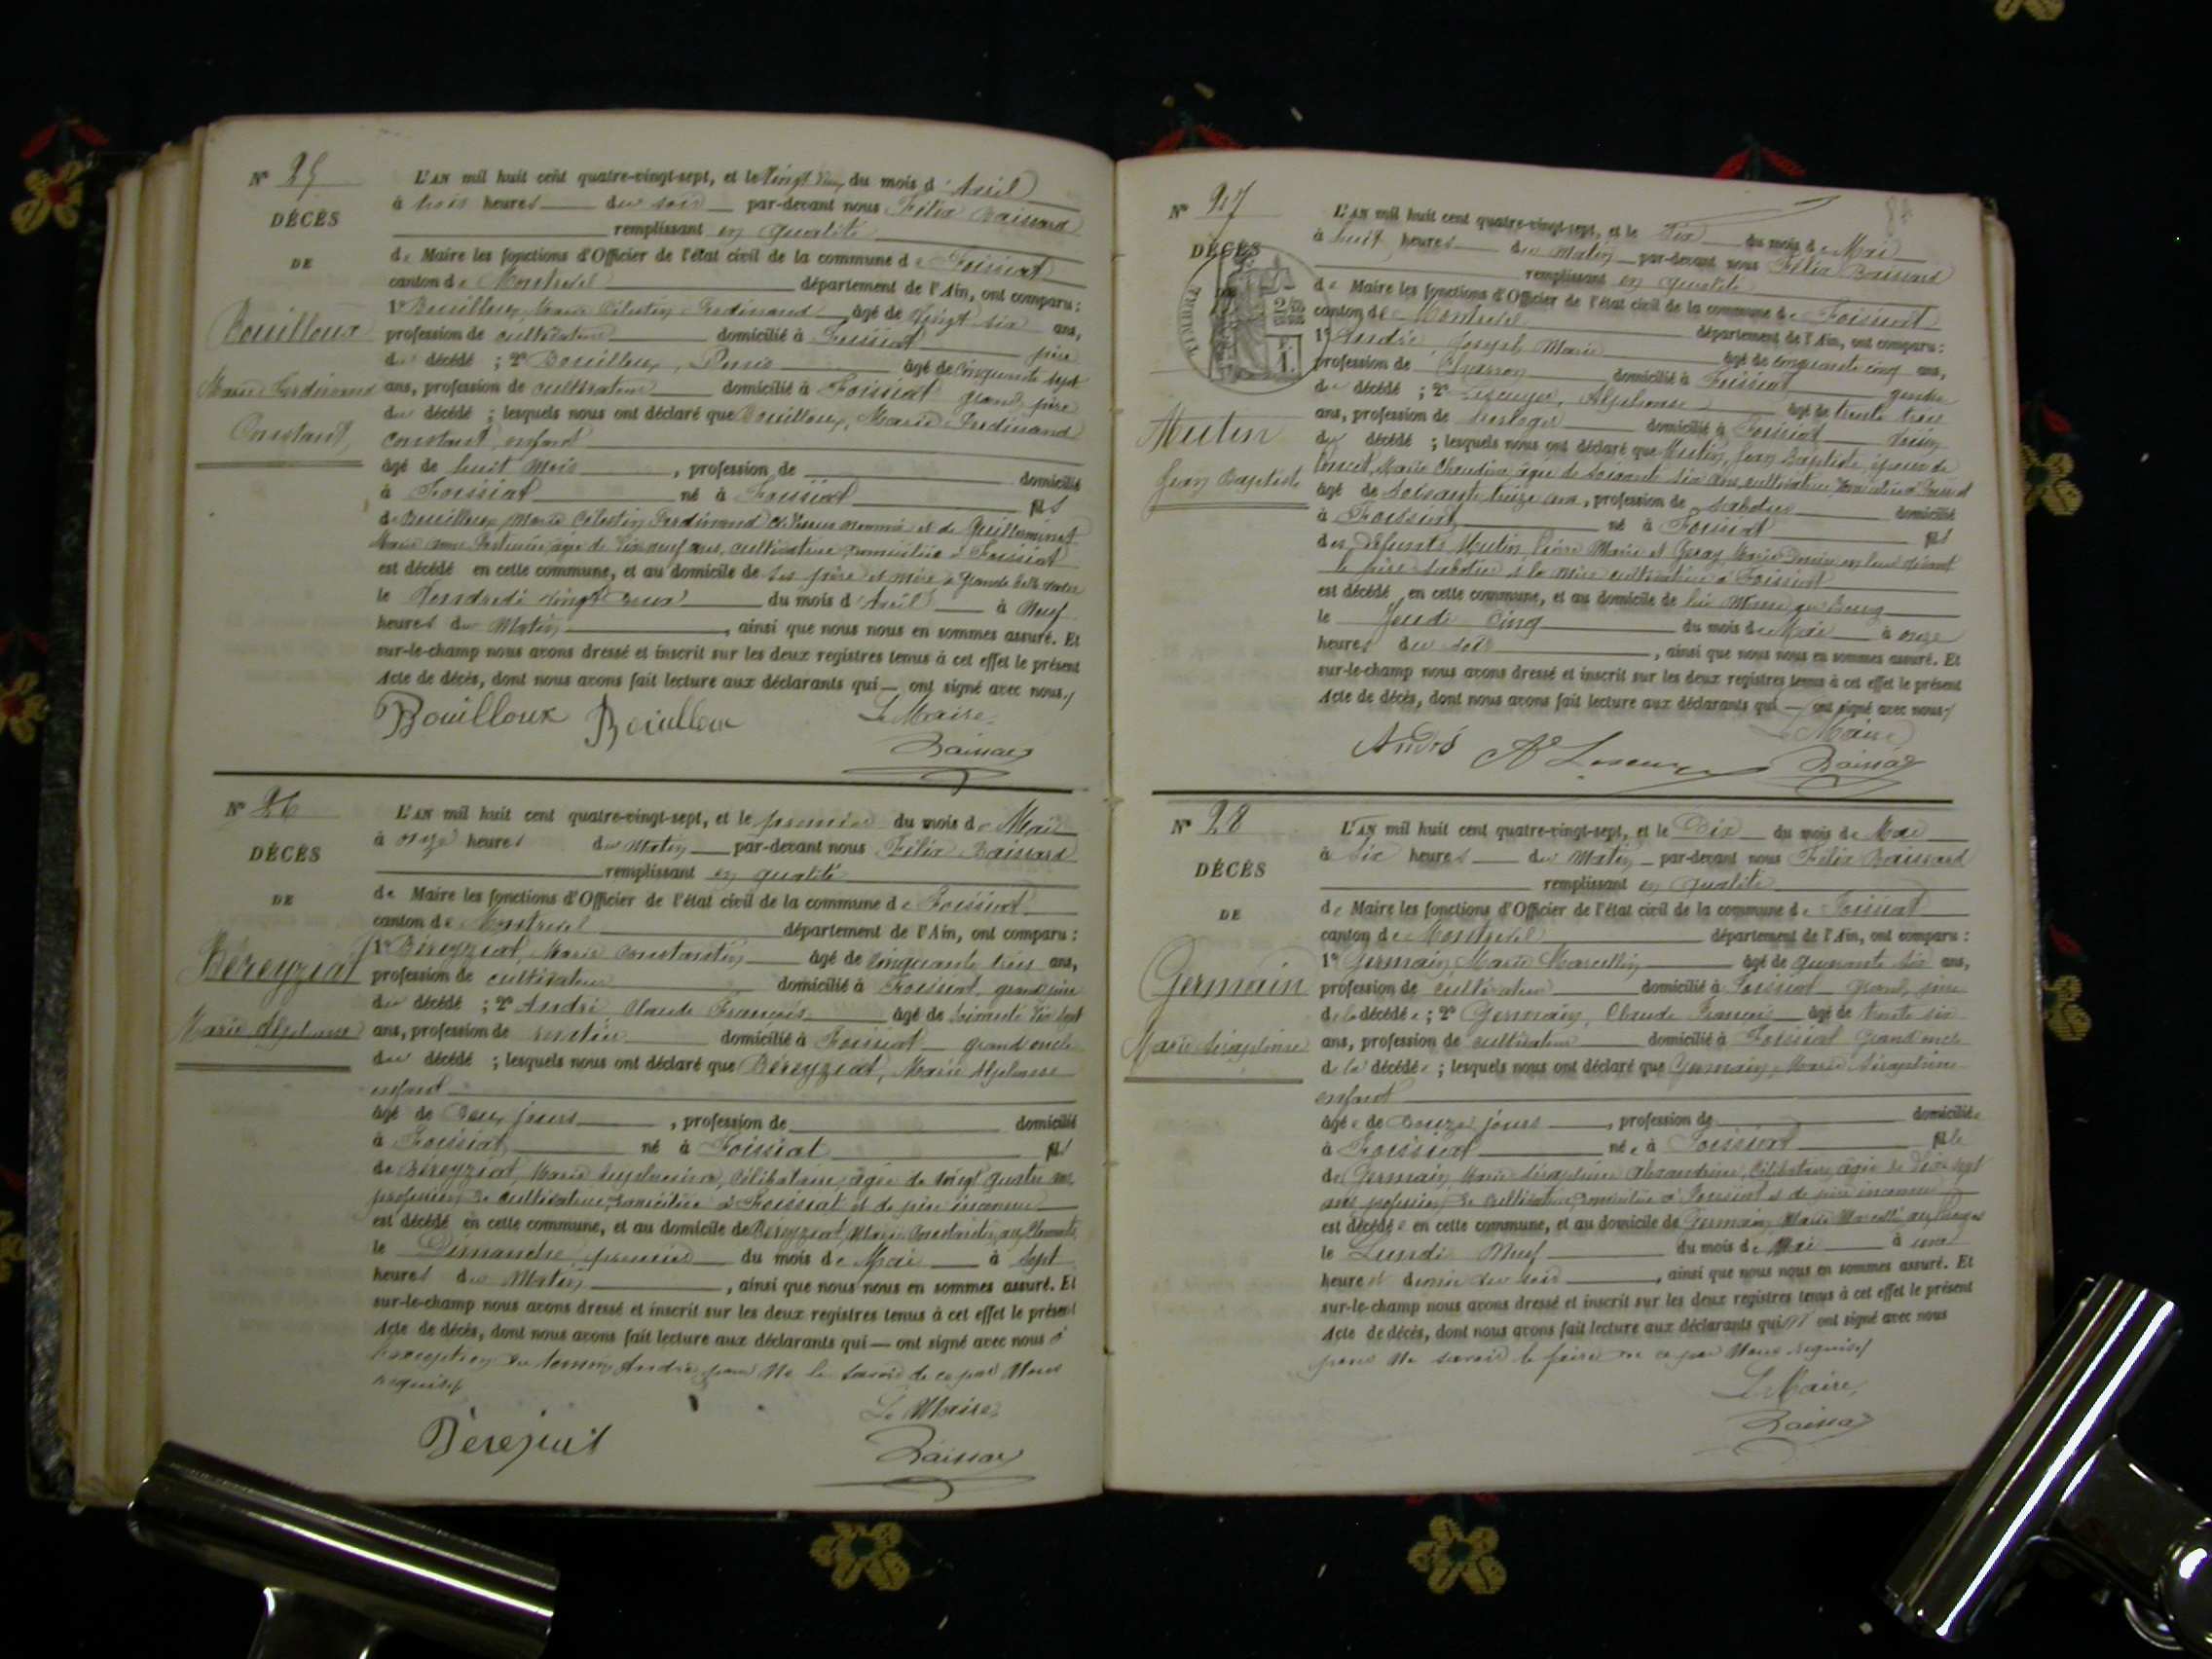 N° 25
DÉCÈS
DE
Bouilloux
Marie Ferdinand
Constant
L'AN mil huit cent quatre-vingt-sept, et le Vingt deux du mois d'Avril
à trois heures du soir par-devant nous Félix Baissard
remplissant en qualité
de Maire les fonctions d'Officier de l'état civil de la commune de Foissiat
canton de Montrevel département de l'Ain, ont comparu :
1° Bouilloux, Marie Célestin Ferdinand âgé de vingt six ans,
profession de cultivateur domicilié à Foissiat père
du décédé ; 2° Bouilloux, Denis âgé de Cinquante sept
ans, profession de cultivateur domicilié à Foissiat grand père
du décédé ; lesquels nous ont déclaré que Bouilloux, Marie Ferdinand
Constant, enfant
âgé de huit mois, profession de domicilié
à Foissiat né à Foissiat fils
de Bouilloux, Marie Célestin Ferdinand ci-dessus nommé et de Guilleminot
Marie âgée de dix neuf ans, cultivatrice, domiciliée à Foissiat
est décédé en cette commune, et au domicile de ses père et mère à Grande
le Vendredi vingt deux du mois d'Avril à Neuf
heures du Matin, ainsi que nous nous en sommes assuré. Et
sur-le-champ nous avons dressé et inscrit sur les deux registres tenus à cet effet le présent
Acte de décès, dont nous avons fait lecture aux déclarants qui — ont signé avec nous./
Bouilloux Bouilloux Le Maire,
Baissard
N° 26
DÉCÈS
DE
Béreyziat
Marie Alphonse
L'AN mil huit cent quatre-vingt-sept, et le premier du mois de Mai
à onze heures du Matin par-devant nous Félix Baissard
remplissant en qualité
de Maire les fonctions d'Officier de l'état civil de la commune de Foissiat
canton de Montrevel département de l'Ain, ont comparu :
1° Béreyziat, Marie Constantin âgé de Cinquante trois ans,
profession de cultivateur domicilié à Foissiat, grand père
du décédé ; 2° André, Claude François âgé de soixante dix sept
ans, profession de rentier domicilié à Foissiat grand oncle
du décédé ; lesquels nous ont déclaré que Béreyziat, Marie Alphonse
enfant
âgé de Deux jours, profession de domicilié
à Foissiat né à Foissiat fils
de Béreyziat, Marie célibataire, âgée de vingt quatre ans,
profession de cultivatrice, domiciliée à Foissiat et de père inconnu
est décédé en cette commune, et au domicile de Béreyziat, Marie Constantin,
le Dimanche premier du mois de Mai à sept
heures du Matin, ainsi que nous nous en sommes assuré. Et
sur-le-champ nous avons dressé et inscrit sur les deux registres tenus à cet effet le présent
Acte de décès, dont nous avons fait lecture aux déclarants qui — ont signé avec nous à
l'exception du témoin André pour ne le savoir de ce par Nous
requis./
Béreziat Le Maire,
Baissard
N° 27
DÉCÈS
TIMBRE
Mutin
Jean Baptiste
L'AN mil huit cent quatre-vingt-sept, et le Six du mois de Mai
à huit heures du Matin par-devant nous Félix Baissard
remplissant en qualité
de Maire les fonctions d'Officier de l'état civil de la commune de Foissiat
canton de Montrevel département de l'Ain, ont comparu :
1° André, Joseph Marie âgé de cinquante cinq ans,
profession de Charron domicilié à Foissiat gendre
du décédé ; 2° Lescuyer, Alphonse âgé de trente trois
ans, profession de horloger domicilié à Foissiat voisin
du décédé ; lesquels nous ont déclaré que Mutin, Jean Baptiste, époux de
Poncet, Marie Claudine, âgée de soixante six ans, cultivatrice, domiciliée à Foissiat
âgé de Soixante treize ans, profession de sabotier domicilié
à Foissiat né à Foissiat fils
des défunts Mutin, Pierre Marie et Marie en leur vivant
le père sabotier et la mère cultivatrice à Foissiat
est décédé en cette commune, et au domicile de lui même au bourg
le Jeudi Cinq du mois de Mai à onze
heures du soir, ainsi que nous nous en sommes assuré. Et
sur-le-champ nous avons dressé et inscrit sur les deux registres tenus à cet effet le présent
Acte de décès, dont nous avons fait lecture aux déclarants qui — ont signé avec nous./
Le Maire,
André Ae Lescuyer Baissard
N° 28
DÉCÈS
DE
Germain
Marie Séraphine
L'AN mil huit cent quatre-vingt-sept, et le Dix du mois de Mai
à six heures du Matin par-devant nous Félix Baissard
remplissant en qualité
de Maire les fonctions d'Officier de l'état civil de la commune de Foissiat
canton de Montrevel département de l'Ain, ont comparu :
1° Germain, Marie Marcellin âgé de quarante six ans,
profession de cultivateur domicilié à Foissiat grand père
de la décédée ; 2° Germain, Claude François âgé de trente six
ans, profession de cultivateur domicilié à Foissiat Grand oncle
de la décédée ; lesquels nous ont déclaré que Germain, Marie Séraphine
enfant
âgée de Douze jours, profession de domiciliée
à Foissiat née à Foissiat fille
de Germain, Marie Séraphine Alexandrine, célibataire, âgée de dix sept
ans, profession de cultivatrice, domiciliée à Foissiat et de père inconnu
est décédée en cette commune, et au domicile de Germain, Marie Marcellin,
le Lundi Neuf du mois de Mai à une
heure et demie du soir, ainsi que nous nous en sommes assuré. Et
sur-le-champ nous avons dressé et inscrit sur les deux registres tenus à cet effet le présent
Acte de décès, dont nous avons fait lecture aux déclarants qui n'ont signé avec nous
pour ne savoir le faire de ce par Nous requis./
Le Maire,
Baissard